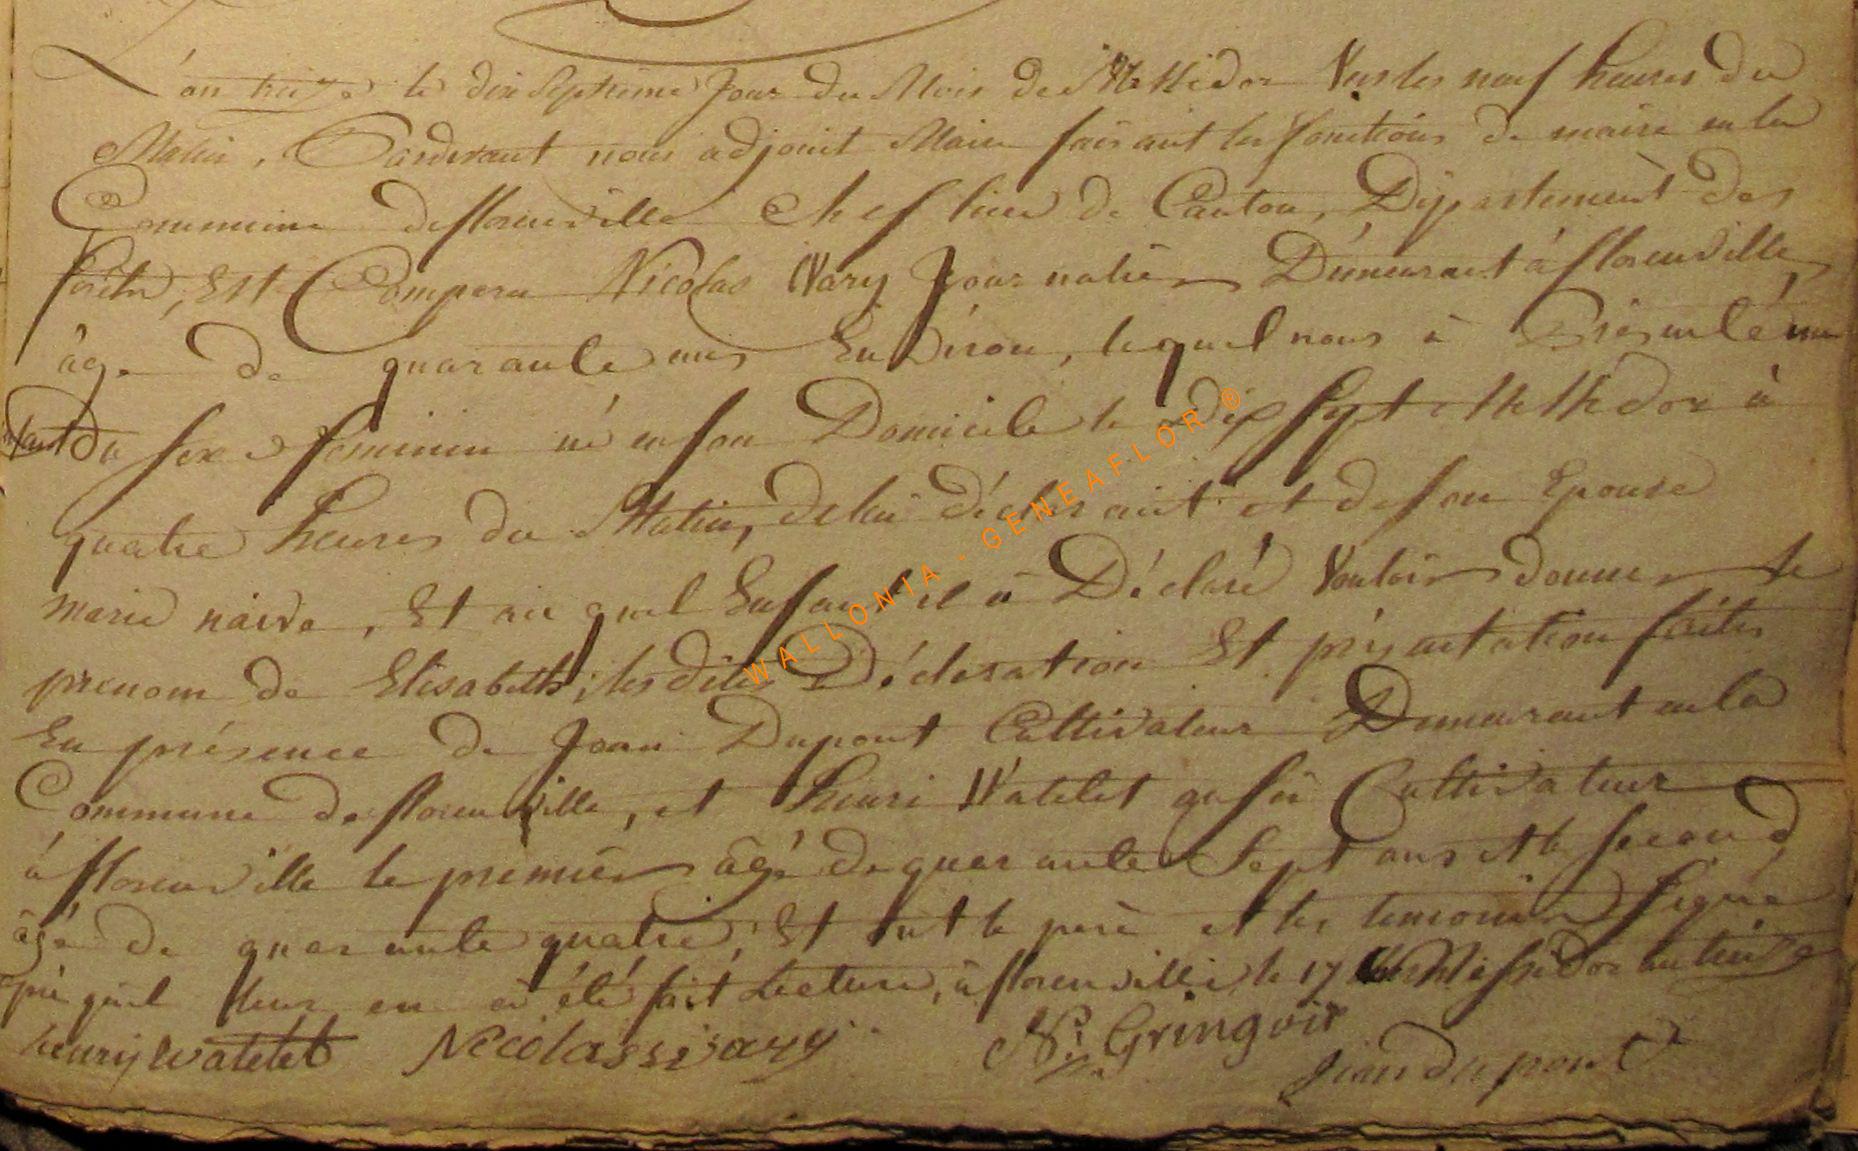 L'an treize le dix Septieme Jour du Mois de Messidor Vers les neuf heures du
Matin, Pardevant nous adjoint Maire faisant les fonctions de maire en la
Commune de florenville Chef lieu de Canton, Département des
forêts, Est Comparu Nicolas Wary Journalier Démeurant à florenville
âgé de quarante ans Environ, lequel nous à Présenté un
enfant Du sexe feminin né en son Domicile le dix sept Messidor à
quatre heures du Matin, de lui déclarant et de son Epouse
marie naive, Et au quel Enfant il à Déclaré Vouloir donner le
prenom de Elisabeth; les dites Déclaration Et présentation faites
En présence de Jean Dupont Cultivateur Demeurant en la
Commune de florenville, et henri Watelet aussi Cultivateur
à florenville le premier âgé de quarante Sept ans et le second
âgé de quarante quatre; Et ont le père et les temoins Signé
près quil leur en a été fait Lecture, à florenville le 17 Messidor an treize
henry watelet Nicolas wary N. Gringoir
Jean du pont
WALLONIA - GENEAFLOR ®